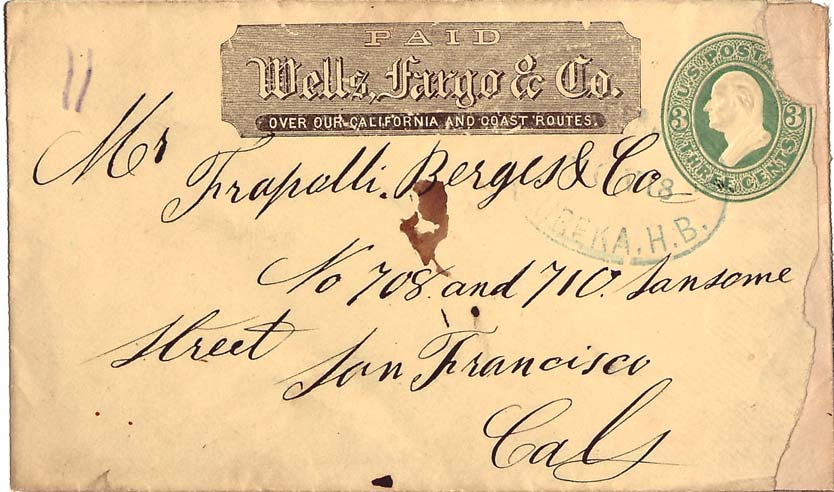 PAID
Wells, Fargo & Co.
OVER OUR CALIFORNIA AND COAST ROUTES.
U.S. POSTAGE
3 3
THREE CENTS
Mr
Frapolli. Berges & Co
EUREKA, H.B.
No 708. and 710. Sansome
Street San Francisco
Cal